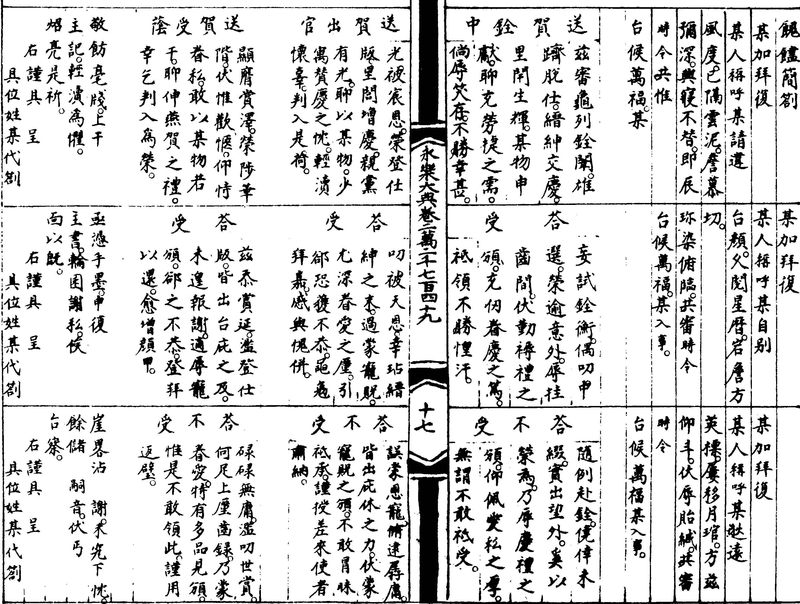 簡劄
某加拜復
某人稱呼某請違
風度已隔雲泥詹慕
彌深興寢不替即辰
時令共惟
台候萬福某
送賀銓中
茲審龜列銓闈雄
躋脫仕縉紳交慶
里閈生輝某物申
獻聊充勞捷之需
倘辱笑存不勝幸甚
某加拜復
某人稱呼某自別
台顏久閱星曆岩詹方
切
珎染俯臨共審時令
台候萬福某入事
答受
妄試銓衡偶叨中
選榮逾意外辱挂
齒問伏勤褥禮之
頒充仞眷慶之篤
祗領不勝惶汗
某加拜復
某人稱呼某敻遠
英標屢移月琯方茲
仰斗伏辱貽緘共審
時令
台候萬福某入事
答不受
隨例赴銓僥倖末
綴實出望外奚以
榮為乃辱慶禮之
頒仰佩愛私之厚
無謂不敢祗受
永樂大典卷二萬二千七百四十九
十七
送賀出官
光被宸恩榮登仕
版里閭增慶親黨
有光聊以某物少
寓贊慶之忱輕瀆
懷幸判入是荷
送賀受蔭
顯膺賞澤榮陟華
階伏惟歡愜仰恃
眷私敢以某物若
干聊伸燕賀之禮
幸乞判入為榮
敬飭毫牋上干
主記輕瀆為懼
炤亮是祈
右謹具呈
具位姓某代劄
答受
叨被天恩幸玷縉
紳之末過蒙寵貺
尤深眷愛之厪引
郤恐獲不恭黽勉
拜嘉感與愧併
答受
茲忝賞延濫登仕
版皆出台庇之及
未遑報謝遽辱寵
頒郤之不恭登拜
以還愈增顏甲
亟憑手墨申復
主書輪囷謝私候
面以既
右謹具呈
具位姓某代劄
答不受
誤蒙恩寵脩逮孱庸
皆出庇休之力伏蒙
寵貺之頒不敢冒昧
祗承謹授差來使者
納
答不受
碌碌無庸濫叨世賞
何足上厪齒錄乃蒙
眷特有多品見頒
惟是不敢領此謹用
返璧
崖畧沾謝未究下忱
餘儲嗣音伏丐
台察
右謹具呈
具位姓某代劄